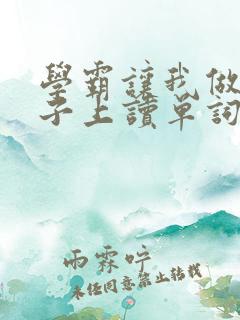 學霸讓我做
子上讀單詞
雨霖呯
未经同意禁止转载